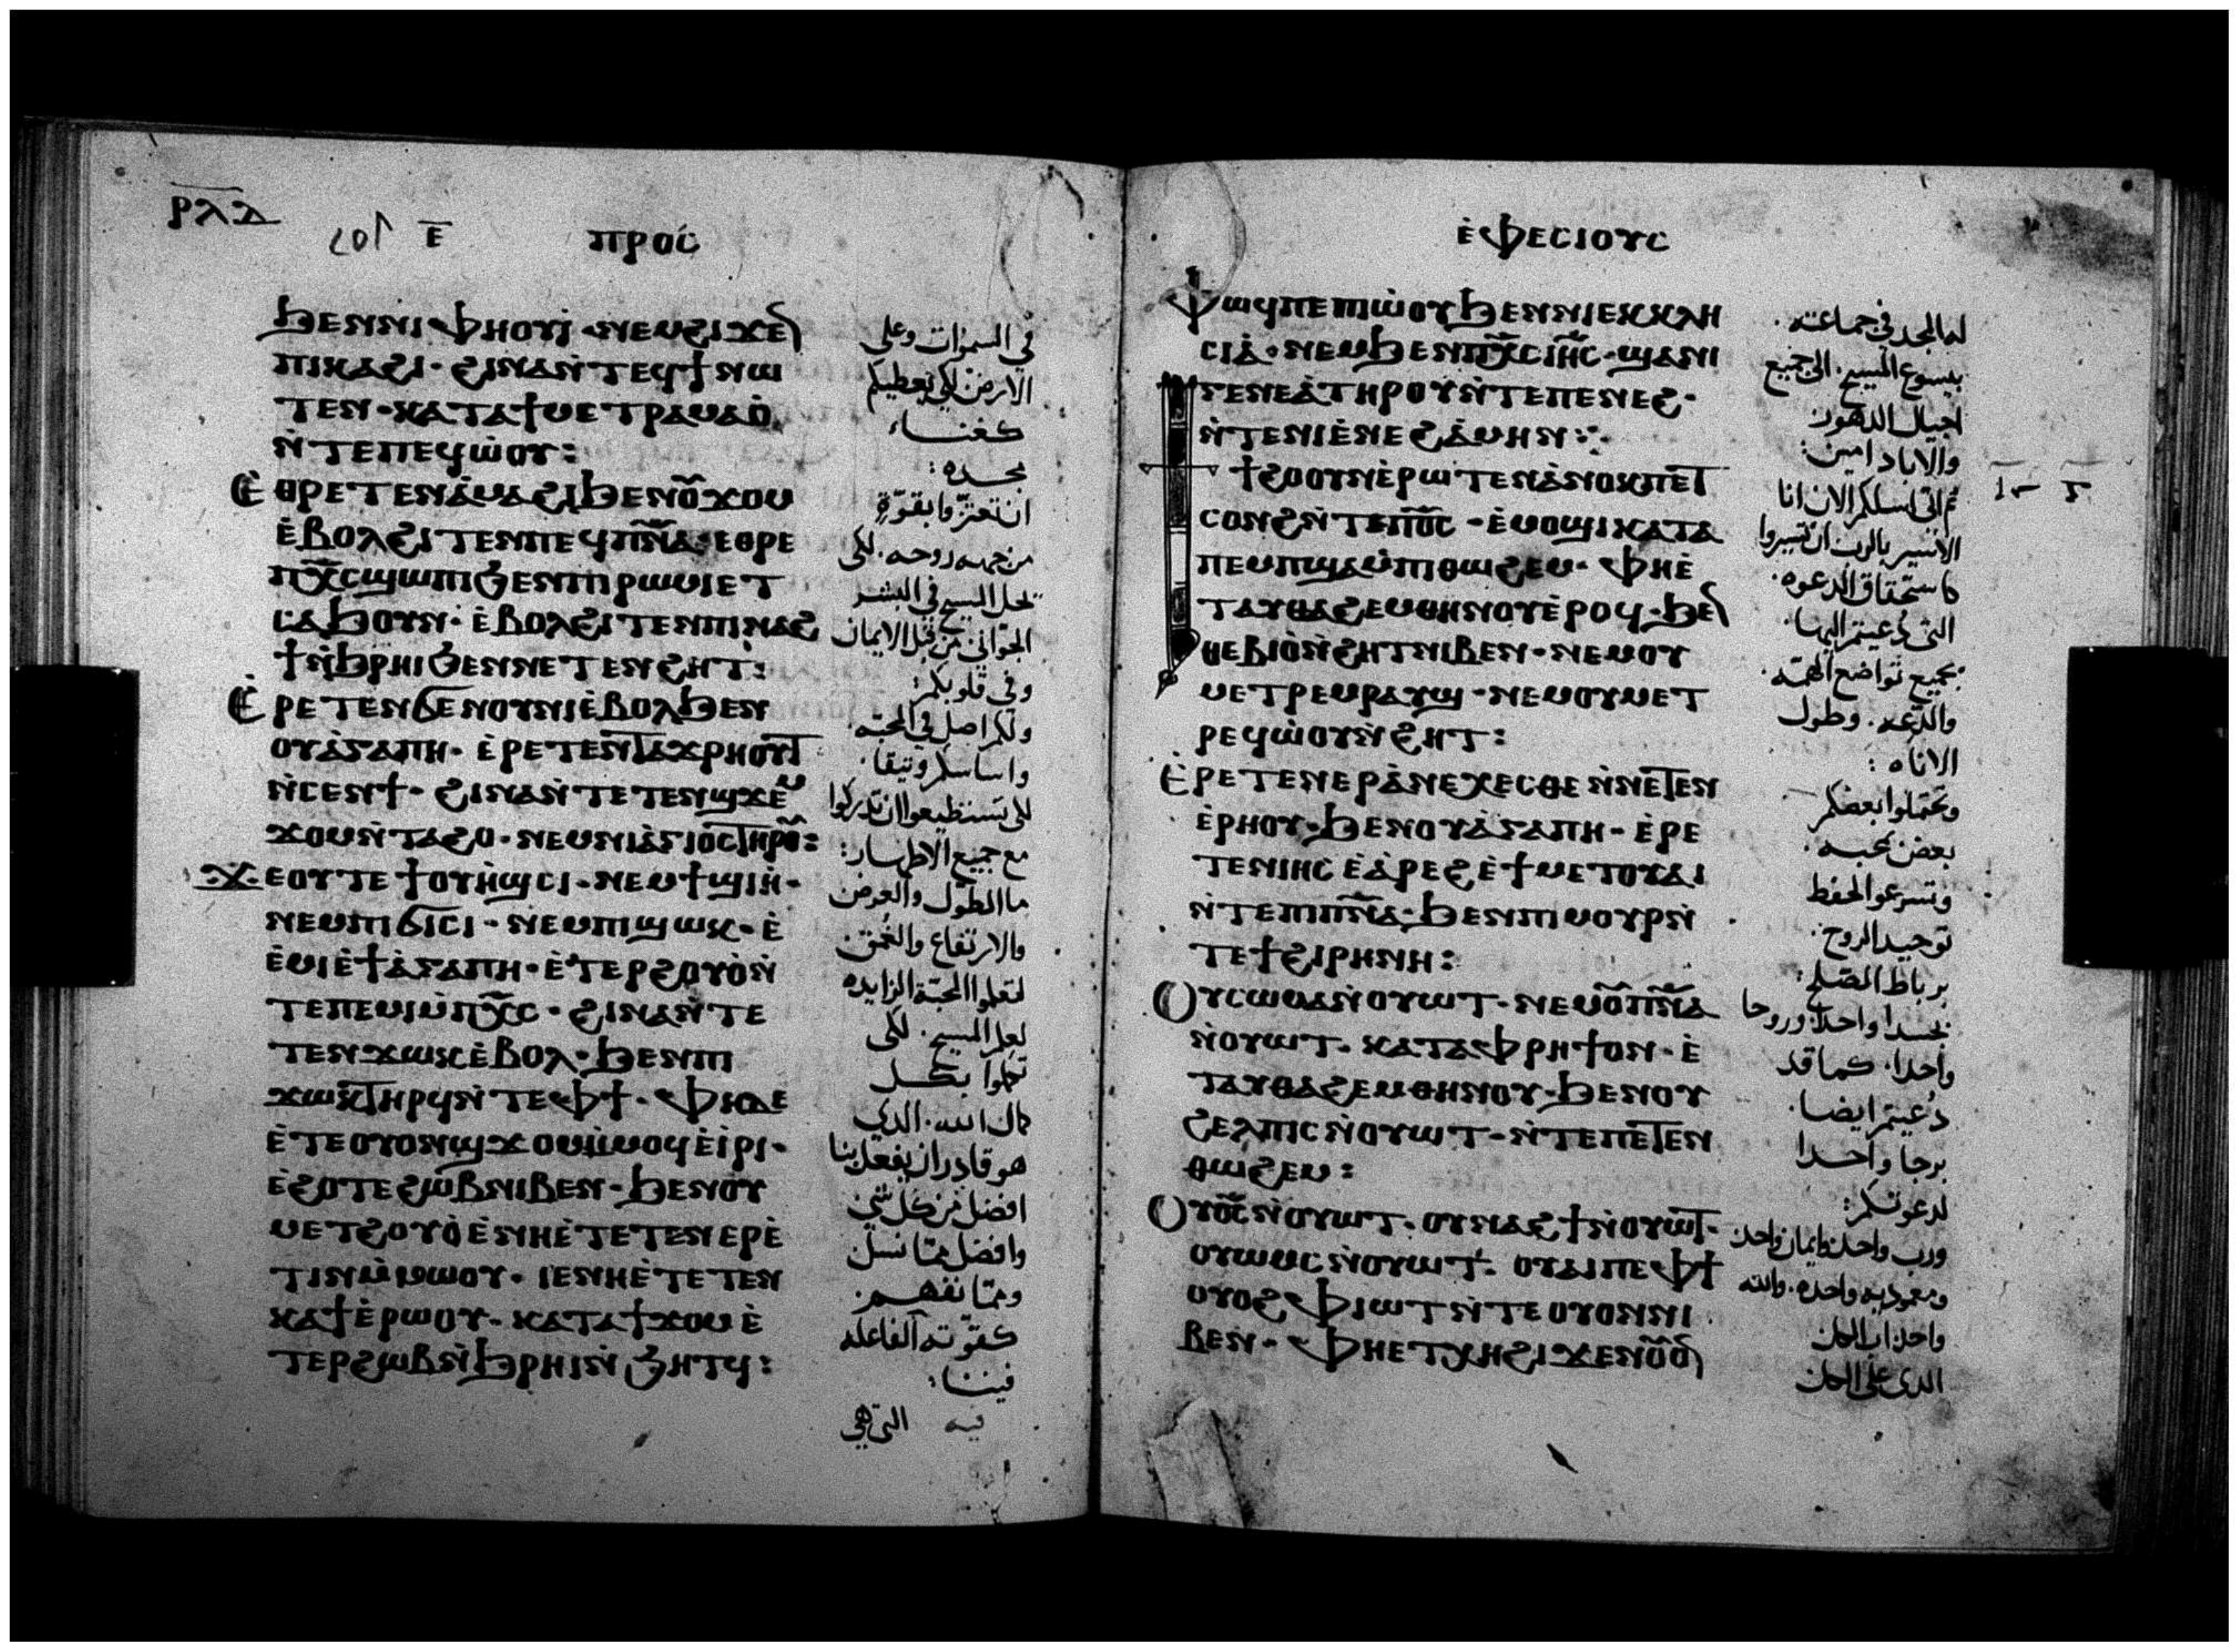 ⲣⲗⲇ
ⲉ̅ ⲡⲣⲟⲥ
ϧⲉⲛⲛⲓⲫⲏⲟⲩⲓ̀·ⲛⲉⲙϩⲓϫⲉⲛ
ⲡⲓⲕⲁϩⲓ·ϩⲓⲛⲁⲛ̀ⲧⲉϥϯⲛⲱ
ⲧⲉⲛ·ⲕⲁⲧⲁϯⲙⲉⲧⲣⲁⲙⲁⲟ̀
ⲛ̀ⲧⲉⲡⲉϥⲱ̀ⲟⲩ:
ⲉ̀ⲑⲣⲉⲧⲉⲛⲁ̀ⲙⲁϩⲓϧⲉⲛⲟ̅ⲩ̅ϫⲟⲙ
ⲉ̀ⲃⲟⲗϩⲓⲧⲉⲛⲡⲉϥⲡ̅ⲛ̅ⲁ̅·ⲉⲑⲣⲉ
ⲡⲭ̅ⲥ̅ϣⲱⲡⲓϧⲉⲛⲡⲓⲣⲱⲙⲓⲉⲧ
ⲥⲁϧⲟⲩⲛ·ⲉ̀ⲃⲟⲗϩⲓⲧⲉⲛⲡⲓⲛⲁϩ
ϯⲛ̀ϧⲣⲏⲓϧⲉⲛⲛⲉⲧⲉⲛϩⲏⲧ:
ⲉ̀ⲣⲉⲧⲉⲛϭⲉⲛⲟⲩⲛⲓⲉ̀ⲃⲟⲗϧⲉⲛ
ⲟⲩⲁ̀ⲅⲁⲡⲏ·ⲉ̀ⲣⲉⲧⲉⲛⲧⲁϫⲣⲏⲟⲩⲧ
ⲛ̀ⲥⲉⲛϯ·ϩⲓⲛⲁⲛ̀ⲧⲉⲧⲉⲛϣϫⲉⲙ
ϫⲟⲙⲛ̀ⲧⲁϩⲟ·ⲛⲉⲙⲛⲓⲁ̀ⲅⲓⲟⲥⲧⲏⲣⲟⲩ:
ϫⲉⲟⲩⲧⲉϯⲟⲩⲏ̀ϣⲥⲓ·ⲛⲉⲙϯϣⲓⲏ·
ⲛⲉⲙⲡⲓϭⲓⲥⲓ·ⲛⲉⲙⲡⲓϣⲱⲕ·ⲉ̀
ⲉ̀ⲙⲓⲉ̀ϯⲁ̀ⲅⲁⲡⲏ·ⲉ̀ⲧⲉⲣϩⲟⲩⲟ̀ⲛ̀
ⲧⲉⲡⲉⲙⲓⲙ̀ⲡⲭ̅ⲥ̅·ϩⲓⲛⲁⲛ̀ⲧⲉ
ⲧⲉⲛϫⲱⲕⲉ̀ⲃⲟⲗ·ϧⲉⲛⲡⲓ
ϫⲱⲕⲧⲏⲣϥⲛ̀ⲧⲉⲫϯ·ⲫⲏⲇⲉ
ⲉ̀ⲧⲉⲟⲩⲟⲛϣϫⲟⲙⲙ̀ⲙⲟϥⲉ̀ⲓ̀ⲣⲓ·
ⲉ̀ϩⲟⲧⲉϩⲱⲃⲛⲓⲃⲉⲛ·ϧⲉⲛⲟⲩ
ⲙⲉⲧϩⲟⲩⲟ̀ⲉ̀ⲛⲏⲉ̀ⲧⲉⲧⲉⲛⲉⲣⲉ̀
ⲧⲓⲛⲙ̀ⲙⲱⲟⲩ·ⲓⲉⲛⲏⲉ̀ⲧⲉⲧⲉⲛ
ⲕⲁϯⲉ̀ⲣⲱⲟⲩ·ⲕⲁⲧⲁϯϫⲟⲙⲉ̀
ⲧⲉⲣϩⲱⲃⲛ̀ϧⲣⲏⲓⲛ̀ϧⲏⲧϥ:
في السموات وعلى
الارض لكي يعطيكم
كغناء
مجده:
ان تعتزوا بقوة
من جهه روحه. لكي
يحل المسيح في البشر
الجواني من قبل الايمان
وفي قلوبكم:
ولكم اصل في المحبه.
واساسكم وثيقا.
لكي تستطيعوا ان تدركوا
مع جميع الاطهار:
ما الطول والعرض
والارتفاع والعمق.
لتعلموا المحبة الزايده
لعلم المسيح. لكي
تكملوا بكل
كمال الله. الذي
هو قادر ان يفعل بنا
افضل من كل شي
وافضل مما نسل
ومما نفهم.
كقوته الفاعله
فيننا:
فيه التي هي
ⲉ̀ⲫⲉⲥⲓⲟⲩⲥ
ⲫⲱϥⲡⲉⲡⲓⲱ̀ⲟⲩϧⲉⲛⲛⲓⲉⲕⲕⲗⲏ
ⲥⲓⲁ̀·ⲛⲉⲙϧⲉⲛⲡⲭ̅ⲥ̅ⲓⲏ̅ⲥ̅·ϣⲁⲛⲓ
ⲅⲉⲛⲉⲁ̀ⲧⲏⲣⲟⲩⲛ̀ⲧⲉⲡⲉⲛⲉϩ·
ⲛ̀ⲧⲉⲛⲓⲉ̀ⲛⲉϩⲁ̀ⲙⲏⲛ:·
ϯϩⲟⲟⲩⲛⲉ̀ⲣⲱⲧⲉⲛⲁ̀ⲛⲟⲕⲡⲉⲧ
ⲥⲟⲛϩⲛ̀ⲧⲉⲡⲟ̅ⲥ̅·ⲉ̀ⲙⲟϣⲓⲕⲁⲧⲁ
ⲡⲉⲙⲡϣⲁⲙ̀ⲡⲓⲑⲱϩⲉⲙ·ⲫⲏⲉ̀
ⲧⲁⲩⲑⲁϩⲉⲙⲑⲏⲛⲟⲩⲉ̀ⲣⲟϥ·ϧⲉⲛ
ⲑⲉⲃⲓⲟ̀ⲛ̀ϩⲏⲧⲛⲓⲃⲉⲛ·ⲛⲉⲙⲟⲩ
ⲙⲉⲧⲣⲉⲙⲣⲁⲩϣ·ⲛⲉⲙⲟⲩⲙⲉⲧ
ⲣⲉϥⲱ̀ⲟⲩⲛ̀ϩⲏⲧ:
ⲉ̀ⲣⲉⲧⲉⲛⲉⲣⲁ̀ⲛⲉⲭⲉⲥⲑⲉⲛ̀ⲛⲉⲧⲉⲛ
ⲉ̀ⲣⲏⲟⲩ·ϧⲉⲛⲟⲩⲁ̀ⲅⲁⲡⲏ·ⲉ̀ⲣⲉ
ⲧⲉⲛⲓⲏⲥⲉ̀ⲁ̀ⲣⲉϩⲉ̀ϯⲙⲉⲧⲟⲩⲁⲓ
ⲛ̀ⲧⲉⲡⲓⲡ̅ⲛ̅ⲁ̅·ϧⲉⲛⲡⲓⲙⲟⲩⲣⲛ̀
ⲧⲉϯϩⲓⲣⲏⲛⲏ:
ⲟⲩⲥⲱⲙⲁⲛ̀ⲟⲩⲱⲧ·ⲛⲉⲙⲟ̅ⲩ̅ⲡ̅ⲛ̅ⲁ̅
ⲛ̀ⲟⲩⲱⲧ·ⲕⲁⲧⲁⲫⲣⲏϯⲟⲛ·ⲉ̀
ⲧⲁⲩⲑⲁϩⲉⲙⲑⲏⲛⲟⲩ·ϧⲉⲛⲟⲩ
ϩⲉⲗⲡⲓⲥⲛ̀ⲟⲩⲱⲧ·ⲛ̀ⲧⲉⲡⲉⲧⲉⲛ
ⲑⲱϩⲉⲙ:
ⲟⲩⲟ̅ⲥ̅ⲛ̀ⲟⲩⲱⲧ·ⲟⲩⲛⲁϩϯⲛ̀ⲟⲩⲱⲧ·
ⲟⲩⲱⲙⲥⲛ̀ⲟⲩⲱⲧ·ⲟⲩⲁⲓⲡⲉⲫϯ
ⲟⲩⲟϩⲫⲓⲱⲧⲛ̀ⲧⲉⲟⲩⲟⲛⲛⲓ
ⲃⲉⲛ·ⲫⲏⲉⲧⲭⲏϩⲓϫⲉⲛⲟ̅ⲩ̅ⲟ̅ⲛ
له المجد في جماعته.
بيسوع المسيح. الى جميع
اجيال الدهور
والاباد امين:
ثم اني اسلكم الان انا
الاسير بالرب ان تسيروا
كاستحقاق الدعوه.
التي دعيتم اليها.
بجميع تواضع الهمه.
والدعه. وطول
الاناه:
وتحتملوا بعضكم
بعض بمحبه.
وتسرعوا لحفظ
توحيد الروح.
برباط الصلح:
بجسدا واحدا وروحا
واحدا. كما قد
دعيتم ايضا.
برجا واحدا
لدعوتكم:
ورب واحد وايمان واحد
ومعموديه واحده. والله
واحد اب الكل
الذي على الكل